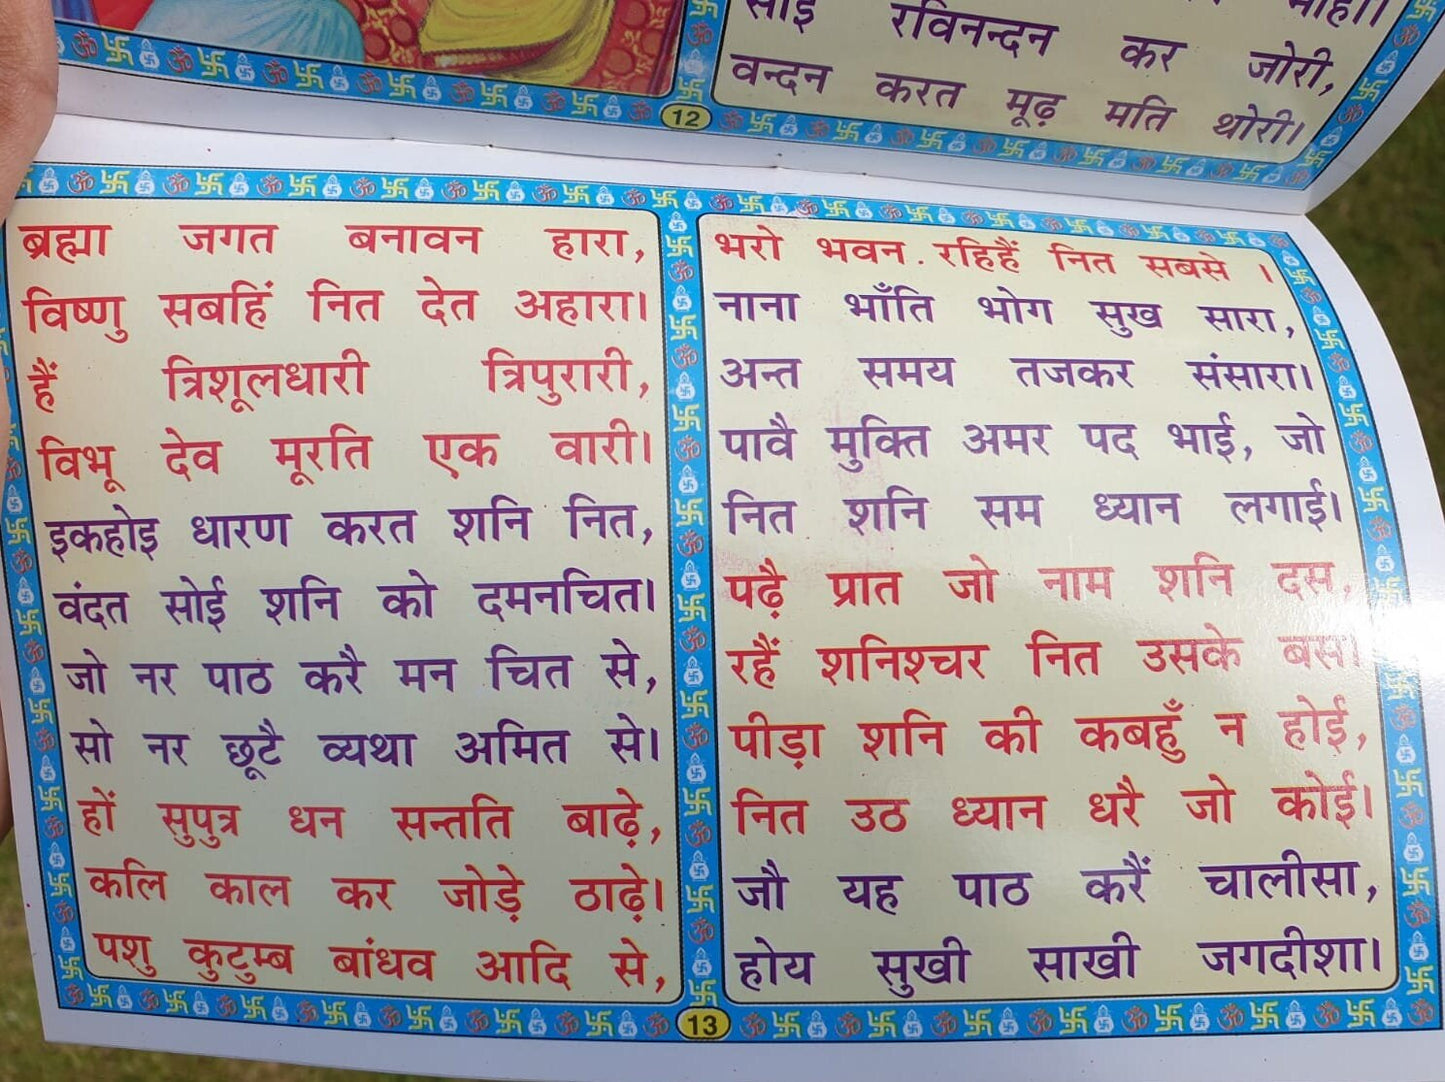 रविनन्दन कर जोरी,
वन्दन करत मूढ़ मति थोरी।
12
ब्रह्मा जगत बनावन हारा,
विष्णु सबहिं नित देत अहारा।
हैं त्रिशूलधारी त्रिपुरारी,
विभू देव मूरति एक वारी।
इकहोइ धारण करत शनि नित,
वंदत सोई शनि को दमनचित।
जो नर पाठ करै मन चित से,
सो नर छूटै व्यथा अमित से।
हों सुपुत्र धन सन्तति बाढ़े,
कलि काल कर जोड़े ठाढ़े।
पशु कुटुम्ब बांधव आदि से,
भरो भवन रहिहैं नित सबसे ।
नाना भाँति भोग सुख सारा,
अन्त समय तजकर संसारा।
पावै मुक्ति अमर पद भाई, जो
नित शनि सम ध्यान लगाई।
पढ़ै प्रात जो नाम शनि दस,
रहैं शनिश्चर नित उसके बस।
पीड़ा शनि की कबहुँ न होई,
नित उठ ध्यान धरै जो कोई।
जौ यह पाठ करैं चालीसा,
होय सुखी साखी जगदीशा।
13